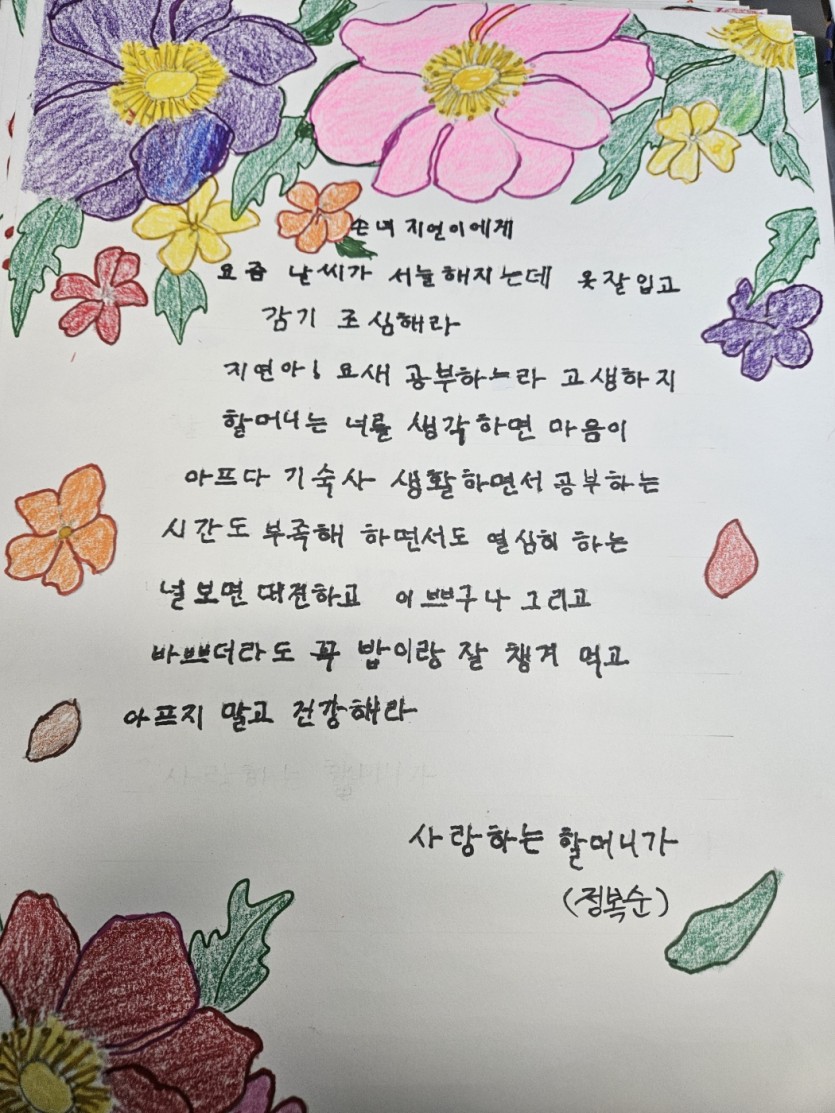 손녀 지연이에게
요즘 날씨가 서늘해지는데 옷잘입고
감기 조심해라
지연아! 요새 공부하느라 고생하지
할머니는 너를 생각하면 마음이
아프다 기숙사 생활하면서 공부하는
시간도 부족해 하면서도 열심히 하는
널보면 대견하고 이쁘구나 그리고
바쁘더라도 꼭 밥이랑 잘 챙겨 먹고
아프지 말고 건강해라
사랑하는 할머니가
(정복순)